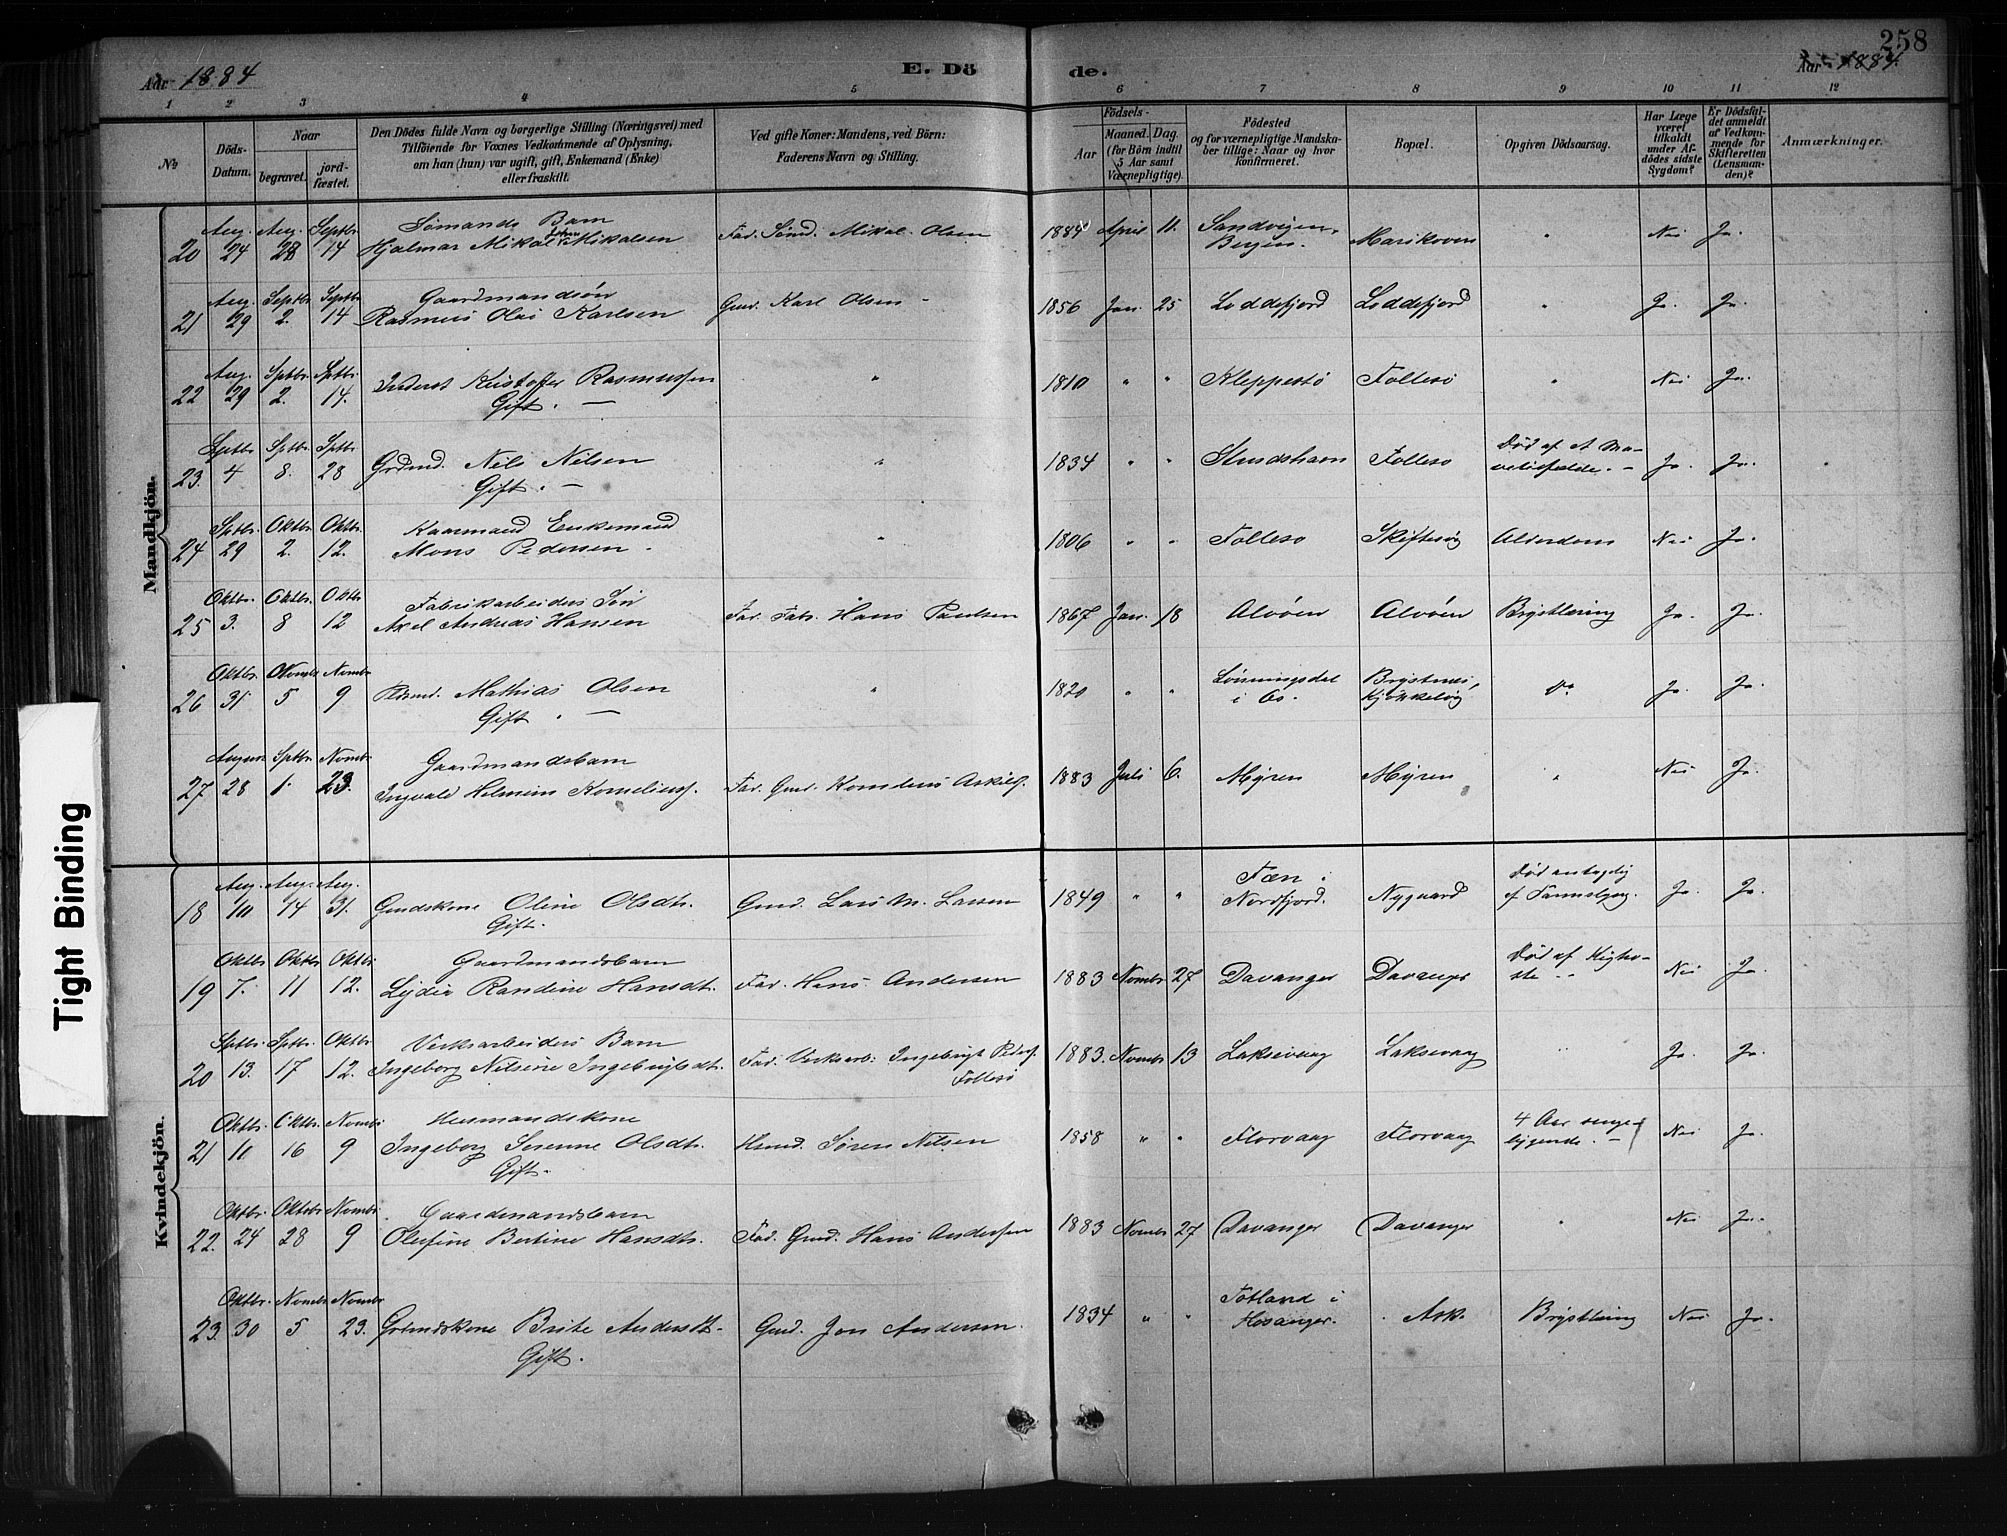 258
Aar 1884
E. Dö
de.
Aar 1884
1 2 3 4 5 6 7 8 9 10 11 12
№
Döds-Datum.
Naar
begravet.
jord-fæstet.
Den Dödes fulde Navn og borgerlige Stilling (Næringsvei) med
Tilföiende for Voxnes Vedkommende af Oplysning,
om han (hun) var ugift, gift, Enkemand (Enke)
eller fraskilt.
Ved gifte Koner: Mandens, ved Börn:
Faderens Navn og Stilling.
Födsels-
Aar
Maaned. Dag.
(for Börn indtil
5 Aar samt
Værnepligtige).
Födested
og for værnepligtige Mandska-
ber tillige: Naar og hvor
konfirmeret.
Bopæl.
Opgiven Dödsaarsag.
Har Læge
været
tilkaldt
under Af-
dödes sidste
Sygdom?
Er Dödsfal-
det anmeldt
af Vedkom-
mende for
Skifteretten
(Lensman-
den)?
Anmærkninger.
Mandkjön.
Aug. Aug. Septbr. Sømands Barn
20 24 28 14 Hjalmar Mikal Mikalsen Fad. Sömd. Mikal Olsen 1884 April 11. Sandvigen, Bergen. Marikoven " Nei Ja.
Aug. Septbr Septbr Gaardmandsön
21 29 2. 14 Rasmus Olai Karlsen Gmd. Karl Olsen 1856 Jan. 25 Loddefjord Loddefjord " Ja. Ja.
Aug. Sptbr. Sptbr.
22 29 2. 14. Inderst Kristoffer Rasmussen " 1810 " " Kleppestö Follesö " Nei Ja.
Gift. —
Sptbr Sptbr. Sptbr
23. 4 8. 28 Grdmd. Nils Nilsen " 1834 " " Strudshavn Follesö Död af Ja. Ja.
Gift. —
Sptbr. Oktbr. Oktbr. Kaarmand Enkemand
24 29 2. 12. Mons Pedersen. " 1806 " " Follesö Skiftesög Alderdom Nei Ja.
Oktbr. Oktbr. Oktbr Fabrikarbeiders Sön
25 3. 8 12 Axel Andreas Hansen Fad. Fabr. Hans Paulsen 1867 Jan. 18 Alvöen Alvöen Brystlæring Ja. Ja.
Oktbr. Novmbr Novmbr
26 31 5 9 Mathias Olsen " 1820 " " Lönningsdal i Os. Brystnes, Kjökkelvig Do Ja. Ja.
Gift. —
August Sptbr. Novmbr Gaardmandsbarn
27 28 1. 23. Ingvald Helmin Korneliuss. Fad. Gmd. Kornelius Askils. 1883 Juli 6. Myren Myren " Nei Ja.
Kvindekjön.
Aug. Aug. Aug.
18 10 14 31. Gmdskone Oline Olsdtr. Gmd. Lars M. Larsen 1849 " " Fæn i Nordfjord. Nygaard Död antagelig af Ja. Ja.
Gift.
Oktbr Oktbr Oktbr Gaardmandsbarn
19 7. 11 12. Lydia Randine Hansdtr. Fad. Hans Andersen 1883 Novmbr 27 Davanger Davanger Död af Kighoste Nei Ja.
Sptbr. Sptbr. Oktbr. Verksarbeiders Barn
20 13. 17 12. Ingeborg Nilsine Ingebrigtsdtr. Fad. Verksarb: Ingebrigt Peders. Follesö 1883. Novmbr 13 Laksevaag Laksevaag " Ja. Ja.
Oktbr. Oktbr. Novmbr Husmandskone
21 10 16 9 Ingeborg Serenne Olsdtr. Hsmd. Sören Nilsen 1858 " " Florvaag Florvaag 4 Aar senge-liggende. — Nei Ja.
Gift.
Oktbr. Oktbr Novmbr. Gaardmandsbarn
22. 24 28 9 Olufine Bertine Hansdtr. Fad. Gmd. Hans Anderssen 1883 Novmbr 27 Davanger Davanger " Nei Ja.
Oktbr. Novmbr Novmbr
23. 30 5 23. Grdmdskone Brite Andersdtr. Gmd. Jon Andersen. 1834 " " Totland i Hosanger. Ask. Brystlæring Nei Ja.
Gift.
Tight Binding